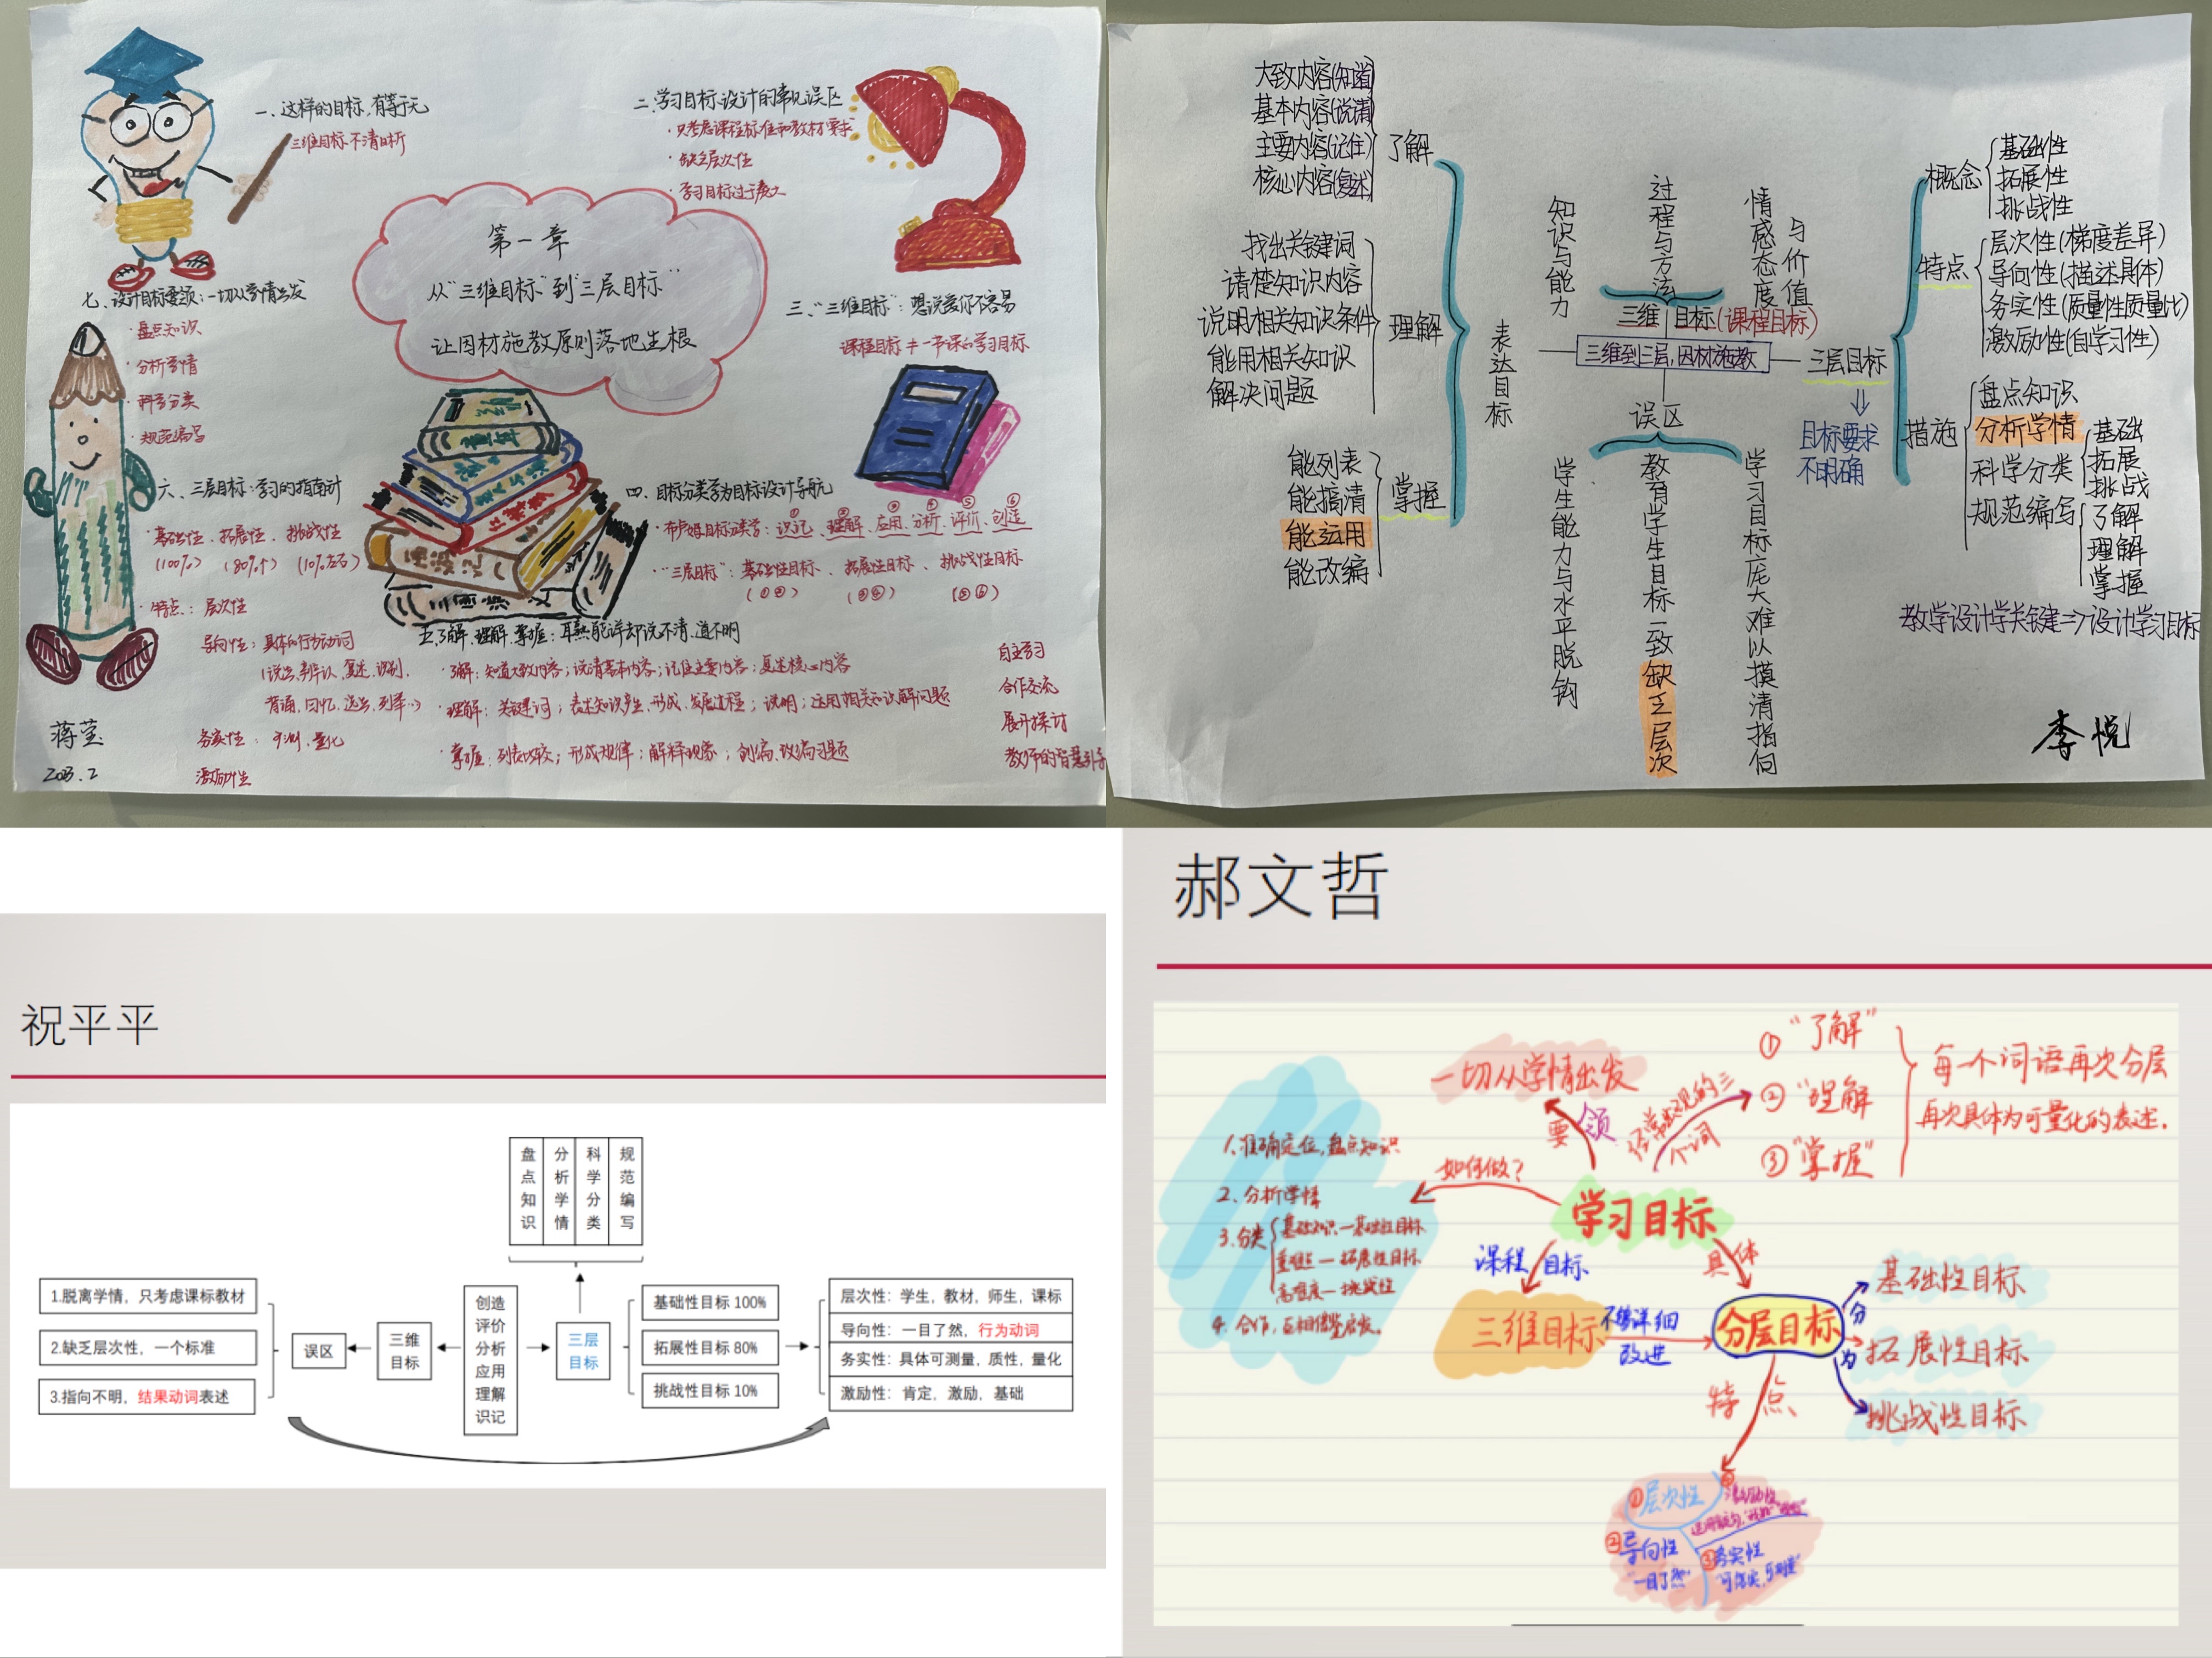 一、这样的目标,有等于无
三维目标不清晰
二、学习目标设计的常见误区
·只考虑课程标准和教材要求
·缺乏层次性
·学习目标过于宽大
第一章
从“三维目标”到“三层目标”
让因材施教原则落地生根
三、“三维目标”:想说爱你不容易
课程目标≠一节课的学习目标
四、目标分类学为目标设计导航
·布卢姆目标分类学:识记、理解、应用、分析、评价、创造
① ② ③ ④ ⑤ ⑥
·“三层目标”:基础性目标、拓展性目标、挑战性目标
(①②) (③④) (⑤⑥)
五、了解、理解、掌握:耳熟能详却说不清、道不明
·了解:知道大致内容;说清基本内容;记住主要内容;复述核心内容
·理解:关键词;表述知识产生、形成、发展过程;说明;运用相关知识解问题
·掌握:列表比较;形成规律;解释现象;创编、改编习题
自主学习
合作交流
展开探讨
教师的智慧引导
六、三层目标:学习的指南针
·基础性、拓展性、挑战性
(100%) (80%↑) (10%左右)
·特点:层次性
导向性:具体的行为动词
(说出、辨认、复述、识别、
背诵、回忆、选出、列举…)
务实性:可测、量化
激励性
七、设计目标要领:一切从学情出发
·盘点知识
·分析学情
·科学分类
·规范编写
蒋莹
2023.2
大致内容(知道)
基本内容(说清)
主要内容(记住)
核心内容(复述)
了解
找出关键词
请楚知识内容
说明相关知识条件
能用相关知识
解决问题
理解
能列表
能搞清
能运用
能改编
掌握
表达目标
知识与能力
过程与方法
情感态度
与价值
三维目标(课程目标)
三维到三层,因材施教
误区
学生能力与水平脱钩
教育学生目标一致缺乏层次
学习目标庞大难以摸清指向
三层目标
目标要求
不明确
概念
基础性
拓展性
挑战性
特点
层次性(梯度差异)
导向性(描述具体)
务实性(质量性质量比)
激励性(自学习性)
措施
盘点知识
分析学情
科学分类
规范编写
基础
拓展
挑战
了解
理解
掌握
教学设计学关键⇒设计学习目标
李悦
祝平平
盘点知识
分析学情
科学分类
规范编写
1.脱离学情,只考虑课标教材
2.缺乏层次性,一个标准
3.指向不明,结果动词表述
误区
三维
目标
创造
评价
分析
应用
理解
识记
三层
目标
基础性目标 100%
拓展性目标 80%
挑战性目标 10%
层次性:学生,教材,师生,课标
导向性:一目了然,行为动词
务实性:具体可测量,质性,量化
激励性:肯定,激励,基础
郝文哲
一切从学情出发
要领
经常出现的三
个词
①“了解”
②“理解
③“掌握”
每一个词语再次分层
再次具体为可量化的表述.
如何做?
1、准确定位,盘点知识
2、分析学情
3.分类
基础知识—基础性目标
重难点—拓展性目标
高难度—挑战性
4、合作,互相借鉴启发。
学习目标
课程目标
三维目标
不够详细
改进
具体
分层目标
分为
基础性目标
拓展性目标
挑战性目标
特点
①层次性
②导向性
“一目了然”
③务实性